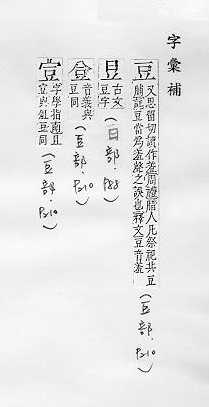 字彙補
豆
又思留切讀作羞周禮腊人凡祭祀共豆
脯豆當爲羞聲之誤也釋文豆音羞
(豆部,P210)
古文
豆字
(日部,P88)
音義與
豆同
(豆部,P210)
字學指南
與俎豆同
(豆部,P210)